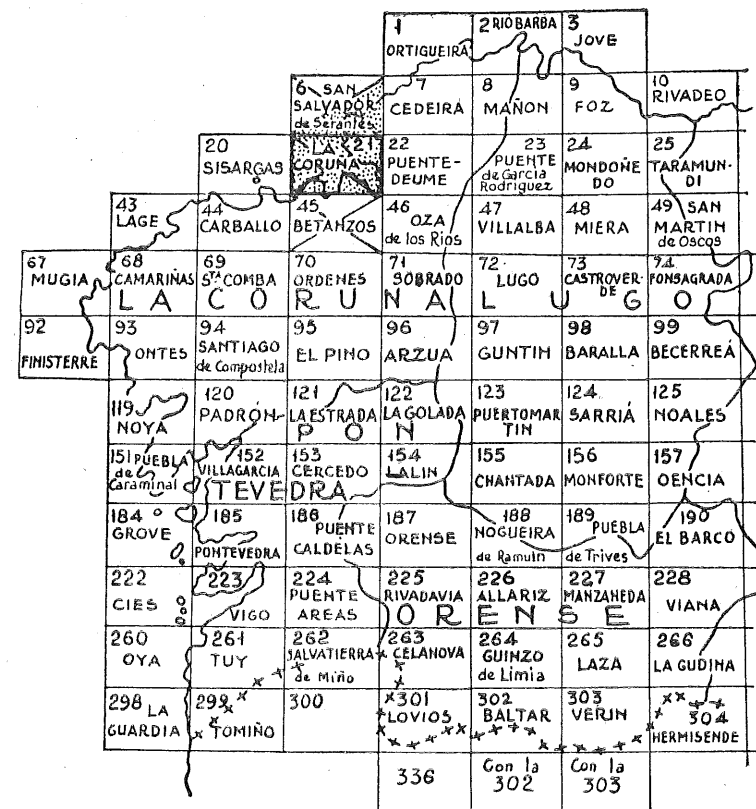 1
ORTIGUEIRA
2 RIOBARBA
3
JOVE
6 SAN
SALVADOR
de Serantes
7
CEDEIRA
8
MAÑON
9
FOZ
10
RIVADEO
20
SISARGAS
LA 21
CORUÑA
22
PUENTE-
DEUME
23
PUENTE
de Garcia
Rodriguez
24
MONDOÑE
DO
25
TARAMUN-
DI
43
LAGE
44
CARBALLO
45
BETANZOS
46
OZA
de los Rios
47
VILLALBA
48
MIERA
49 SAN
MARTIN
de Oscos
67
MUGIA
68
CAMARIÑAS
69
STA COMBA
70
ORDENES
71
SOBRADO
72
LUGO
73
CASTROVER-
DE
74
FONSAGRADA
LA CORUÑA LUGO
92
FINISTERRE
93
ONTES
94
SANTIAGO
de Compostela
95
EL PINO
96
ARZUA
97
GUNTIN
98
BARALLA
99
BECERREÁ
119
NOYA
120
PADRÓN
121
LA ESTRADA
122
LA GOLADA
123
PUERTOMAR
TIN
124
SARRIÁ
125
NOALES
PON
151 PUEBLA
de
Caraminal
152
VILLAGARCIA
153
CERCEDO
154
LALIN
155
CHANTADA
156
MONFORTE
157
OENCIA
TEVEDRA
184
GROVE
185
PONTEVEDRA
186
PUENTE
CALDELAS
187
ORENSE
188
NOGUEIRA
de Ramuin
189
PUEBLA
de Trives
190
EL BARCO
222
CIES
223
VIGO
224
PUENTE
AREAS
225
RIVADAVIA
226
ALLARIZ
227
MANZANEDA
228
VIANA
ORENSE
260
OYA
261
TUY
262
SALVATIERRA
de Miño
263
CELANOVA
264
GUINZO
de Limia
265
LAZA
266
LA GUDINA
298 LA
GUARDIA
299
TOMIÑO
300
301
LOVIOS
302
BALTAR
303
VERIN
304
HERMISENDE
336
Con la
302
Con la
303